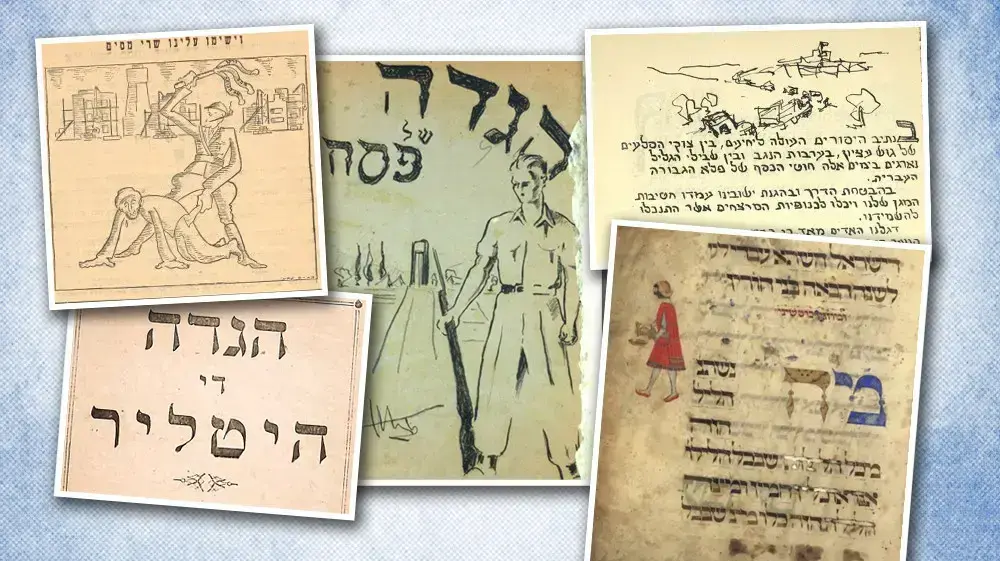 וישימו עלינו שרי מסים
הגדה
של
פסח
בנתיב היסורים העולה ליחיעם, בין צוקי הסלעים
של גוש עציון, בערבות הנגב ובין שבילי הגליל
נארגים בימים אלה חוטי הכסף של פלא הגבורה
העברית.
בהבטחת הדרך ובהגנת ישובינו עמדו חטיבות
המגן שלנו ויכלו לכנופיות המרצחים אשר התנכלו
להשמידנו.
דגלנו האדים מאד
הגדה
די
היטליר
דישראל השתא עבדי
לשנה הבאה בני חורין
מה
נשתנה
הלילה
הזה
מכל הלילות שבכל הלילות
אנו
הלילה הזה כלו מרור שבכל